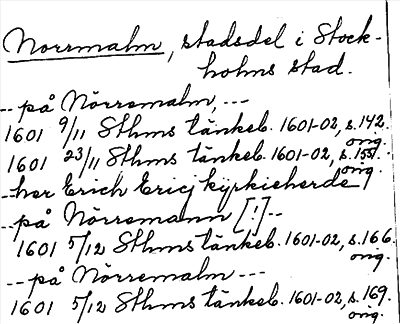 Norrmalm, stadsdel i Stock-
holms stad.
-- på Nörremalm, ---
1601 9/11 Sthms tänkeb. 1601-02, s. 142.
orig.
1601 23/11 Sthms tänkeb. 1601-02, s. 155.
orig.
-- her Erich Ericj kyrkieherde
-- på Nörremann [!] --
1601 5/12 Sthms tänkeb. 1601-02, s. 166.
orig.
-- på Nörremalm ---
1601 5/12 Sthms tänkeb. 1601-02, s. 169.
orig.